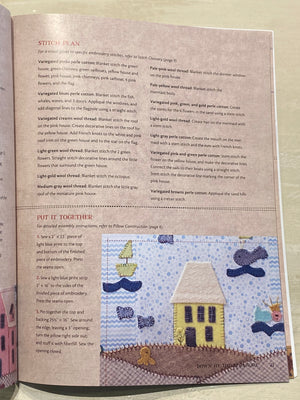 STITCH PLAN
For a visual guide to specific embroidery stitches, refer to Stitch Glossary (page 8)
Variegated pinks perle cotton: Blanket stitch the
green house, chimney, green sailboat, yellow house and
flower, pink house, pink chimneys, pink sailboat, 4 pink
flowers, and the flag.
Variegated limes perle cotton: Blanket stitch all the fish,
whales, waves, and 3 doors. Appliqué the windows, and
add diagonal lines to the flagpole using a straight stitch.
Variegated creams wool thread: Blanket stitch the roof
on the pink house. Create decorative lines on the roof for
the yellow house. Add French knots to the white and pink
roof trim on the green house and to the star on the flag.
Light-green wool thread: Blanket stitch the 2 gold
flowers. Straight stitch decorative lines around the little
flowers that surround the green house.
Light-gold wool thread: Blanket stitch the octopus.
Medium-gray wool thread: Blanket stitch the little gray
roof of the miniature pink house.
Pale-pink wool thread: Blanket stitch the dormer window
on the pink house.
Pale-yellow wool thread: Blanket stitch the
mermaid body.
Variegated pink, green, and gold perle cotton: Create
the stems for the flowers in the sand using a stem stitch.
Light-gold wool thread: Create hair on the mermaid with
a stem stitch.
Light-gray perle cotton: Create the mouth on the mer-
maid with a stem stitch and the eyes with French knots.
Variegated pink and green perle cotton: Stem stitch the
flower on the yellow house, and make the decorative lines.
Connect the sails to their boats using a straight stitch.
Stem stitch the decorative line marking the corner of the
pink house.
Variegated browns perle cotton: Appliqué the sand hills
using a meander stitch.
PUT IT TOGETHER
For detailed assembly instructions, refer to Pillow Construction (page 6).
1. Sew a 3˝ x 25˝ piece of
light blue print to the top
and bottom of the finished
piece of embroidery. Press
the seams open.
2. Sew a light blue print strip
3˝ x 16˝ to the sides of the
finished piece of embroidery.
Press the seams open.
3. Pin together the top and
backing 29½˝ x 16˝. Sew around
the edge, leaving a 5˝ opening;
turn the pillow right side out;
and stuff it with fiberfill. Sew the
opening closed.